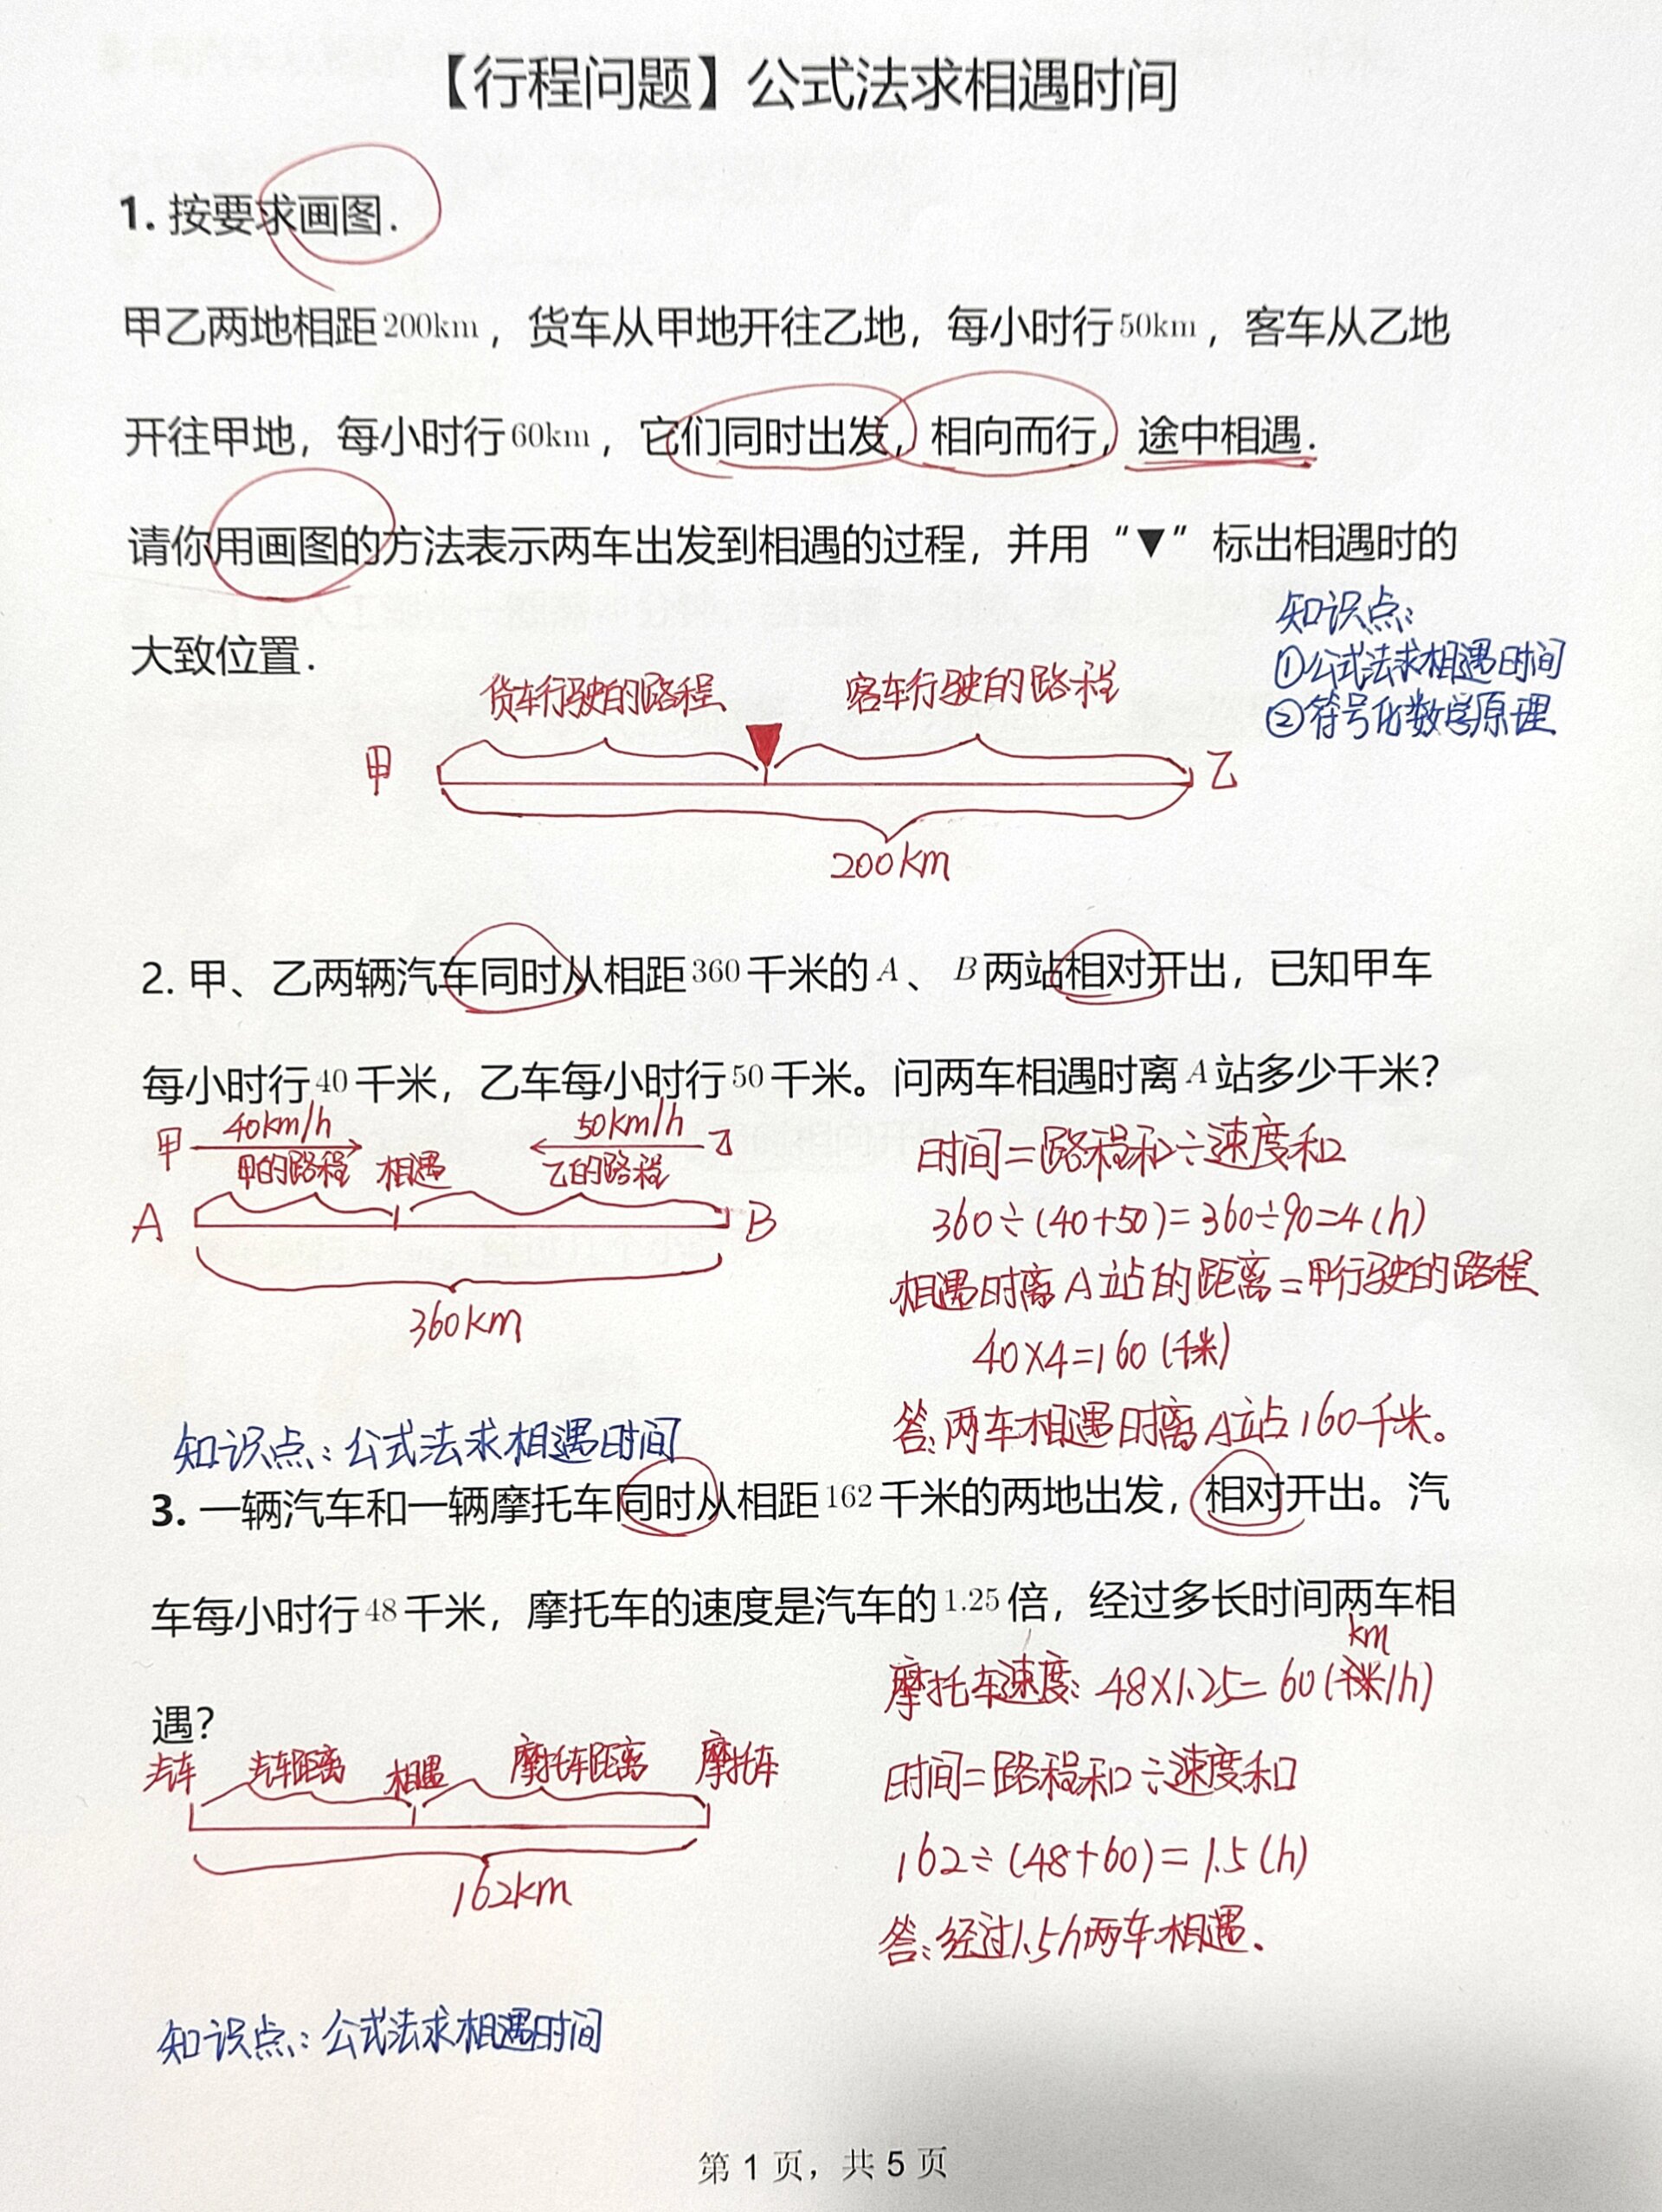 【行程问题】公式法求相遇时间
1. 按要求画图．
甲乙两地相距200km，货车从甲地开往乙地，每小时行50km，客车从乙地
开往甲地，每小时行60km，它们同时出发，相向而行，途中相遇．
请你用画图的方法表示两车出发到相遇的过程，并用“▼”标出相遇时的
大致位置．
知识点：
①公式法求相遇时间
②符号化数学原理
货车行驶的路程 客车行驶的路程
甲 乙
200km
2. 甲、乙两辆汽车同时从相距360千米的A、B两站相对开出，已知甲车
每小时行40千米，乙车每小时行50千米。问两车相遇时离A站多少千米？
甲 40km/h 50km/h 乙
甲的路程 相遇 乙的路程
A B
360km
时间=路程和÷速度和
360÷(40+50)=360÷90=4(h)
相遇时离A站的距离=甲行驶的路程
40×4=160(千米)
答：两车相遇时离A站160千米。
知识点：公式法求相遇时间
3. 一辆汽车和一辆摩托车同时从相距162千米的两地出发，相对开出。汽
车每小时行48千米，摩托车的速度是汽车的1.25倍，经过多长时间两车相
遇？
汽车 汽车距离 相遇 摩托车距离 摩托车
162km
km
摩托车速度：48×1.25=60(千米/h)
时间=路程和÷速度和
162÷(48+60)=1.5(h)
答：经过1.5h两车相遇.
知识点：公式法求相遇时间
第 1 页，共 5 页